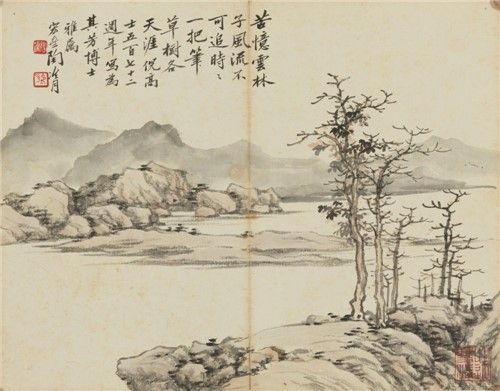 苦憶雲林
子風流不
可追時〻
一把筆
草樹各
天涯倪高
士五百七十二
週年寫為
其芳博士
雅屬
匋冷月